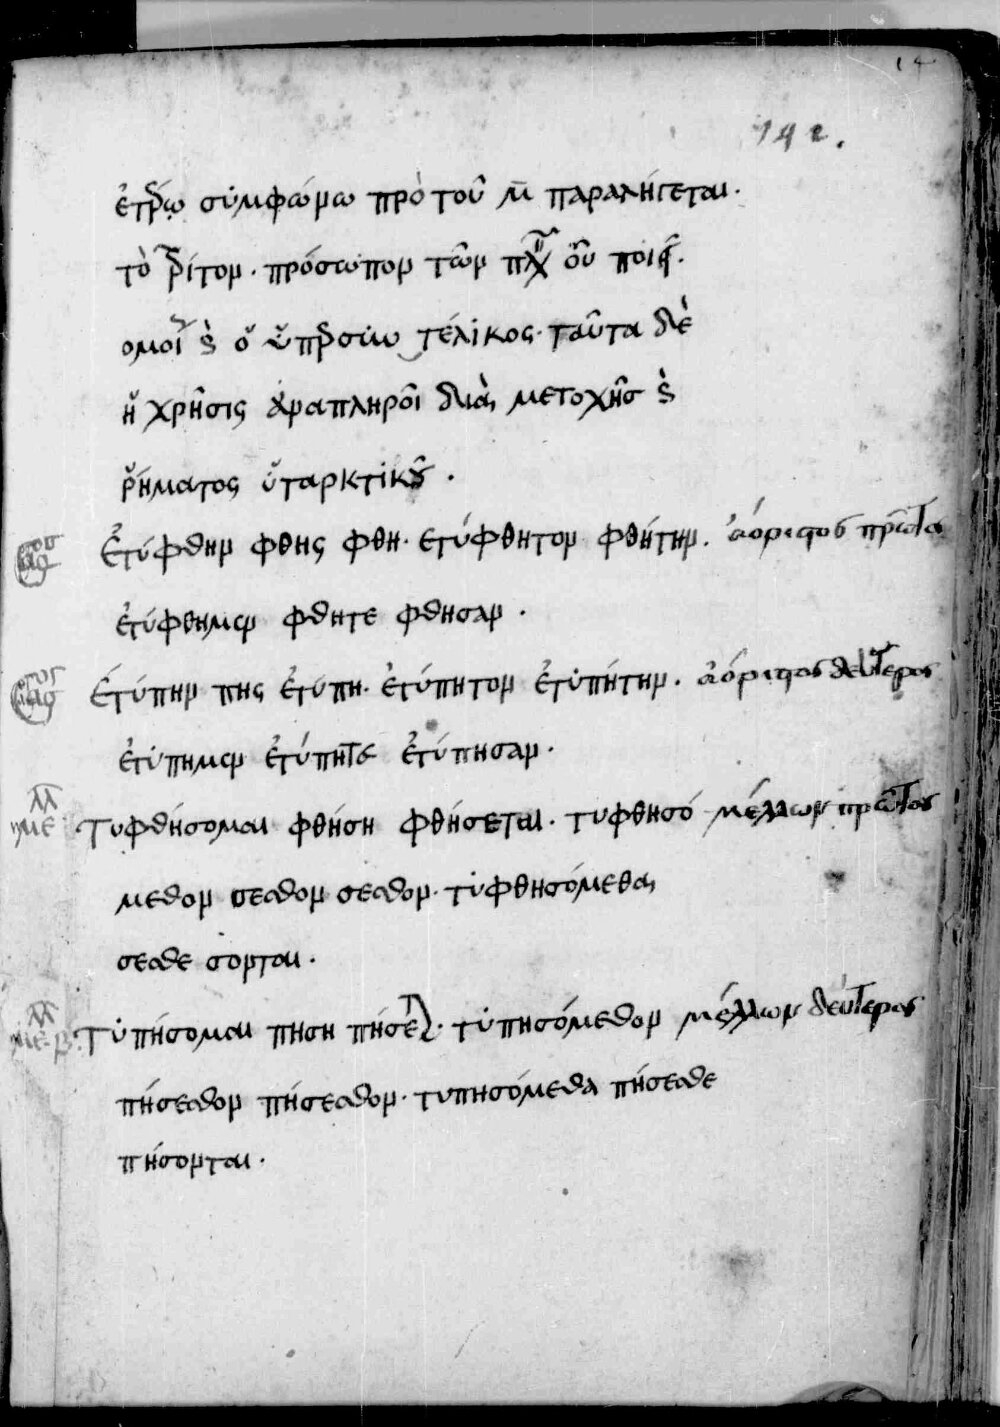 14
192.
ἑτέρω συμφώνω πρὸ τοῦ μ̄ παραλήγεται·
τὸ τρίτον· πρόσωπον τῶν πλ οὐ ποιεῖ·
ομοί ὁ ὑπερσυν τέλικος· ταῦτα δὲ
ἡ χρῆσις ἀναπληροῖ διὰ μετοχῆς
ῥήματος ὑπαρκτικοῦ·
Ἐτύφθην φθης φθη· ετύφθητον φθήτην· ἀόριστος πρῶτος
ἐτύφθημεν φθητε φθησαν·
Ἐτύπην πης ἐτύπη· ἐτύπητον ἐτυπήτην· ἀόριστος δεύτερος
ἐτύπημεν ἐτύπητε ἐτύπησαν·
Τυφθήσομαι φθήση φθήσεται· τυφθησό μέλλων πρῶτος
μεθον σεσθον σεσθον· τυφθησόμεθα
σεσθε σονται·
Τυπήσομαι πηση πήσεται· τυπησόμεθον μέλλων δεύτερος
πήσεσθον πήσεσθον· τυπησόμεθα πήσεσθε
πήσονται·